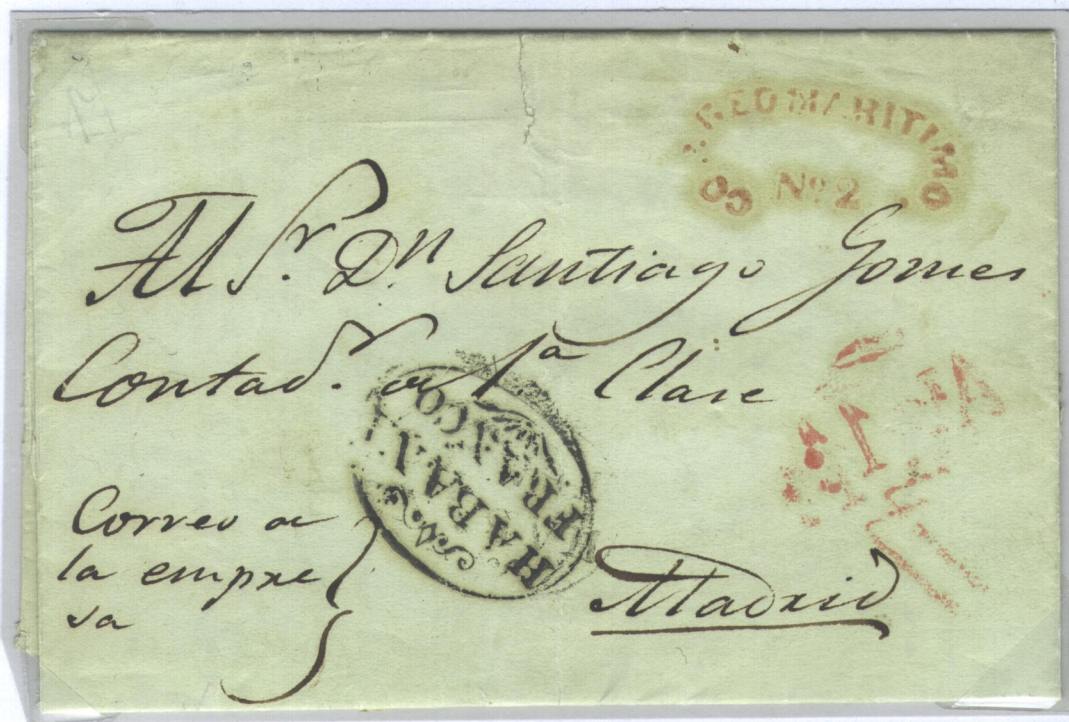 CORREO MARITIMO
Nº 2
Al Sr. Dn Santiago Gomes
Contadr. de 1a Clase
HABANA
FRANCO
Correo de
la empre
sa
Madrid